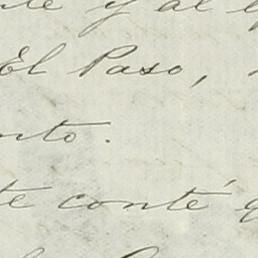 y al
El Paso,
nto.
te conté